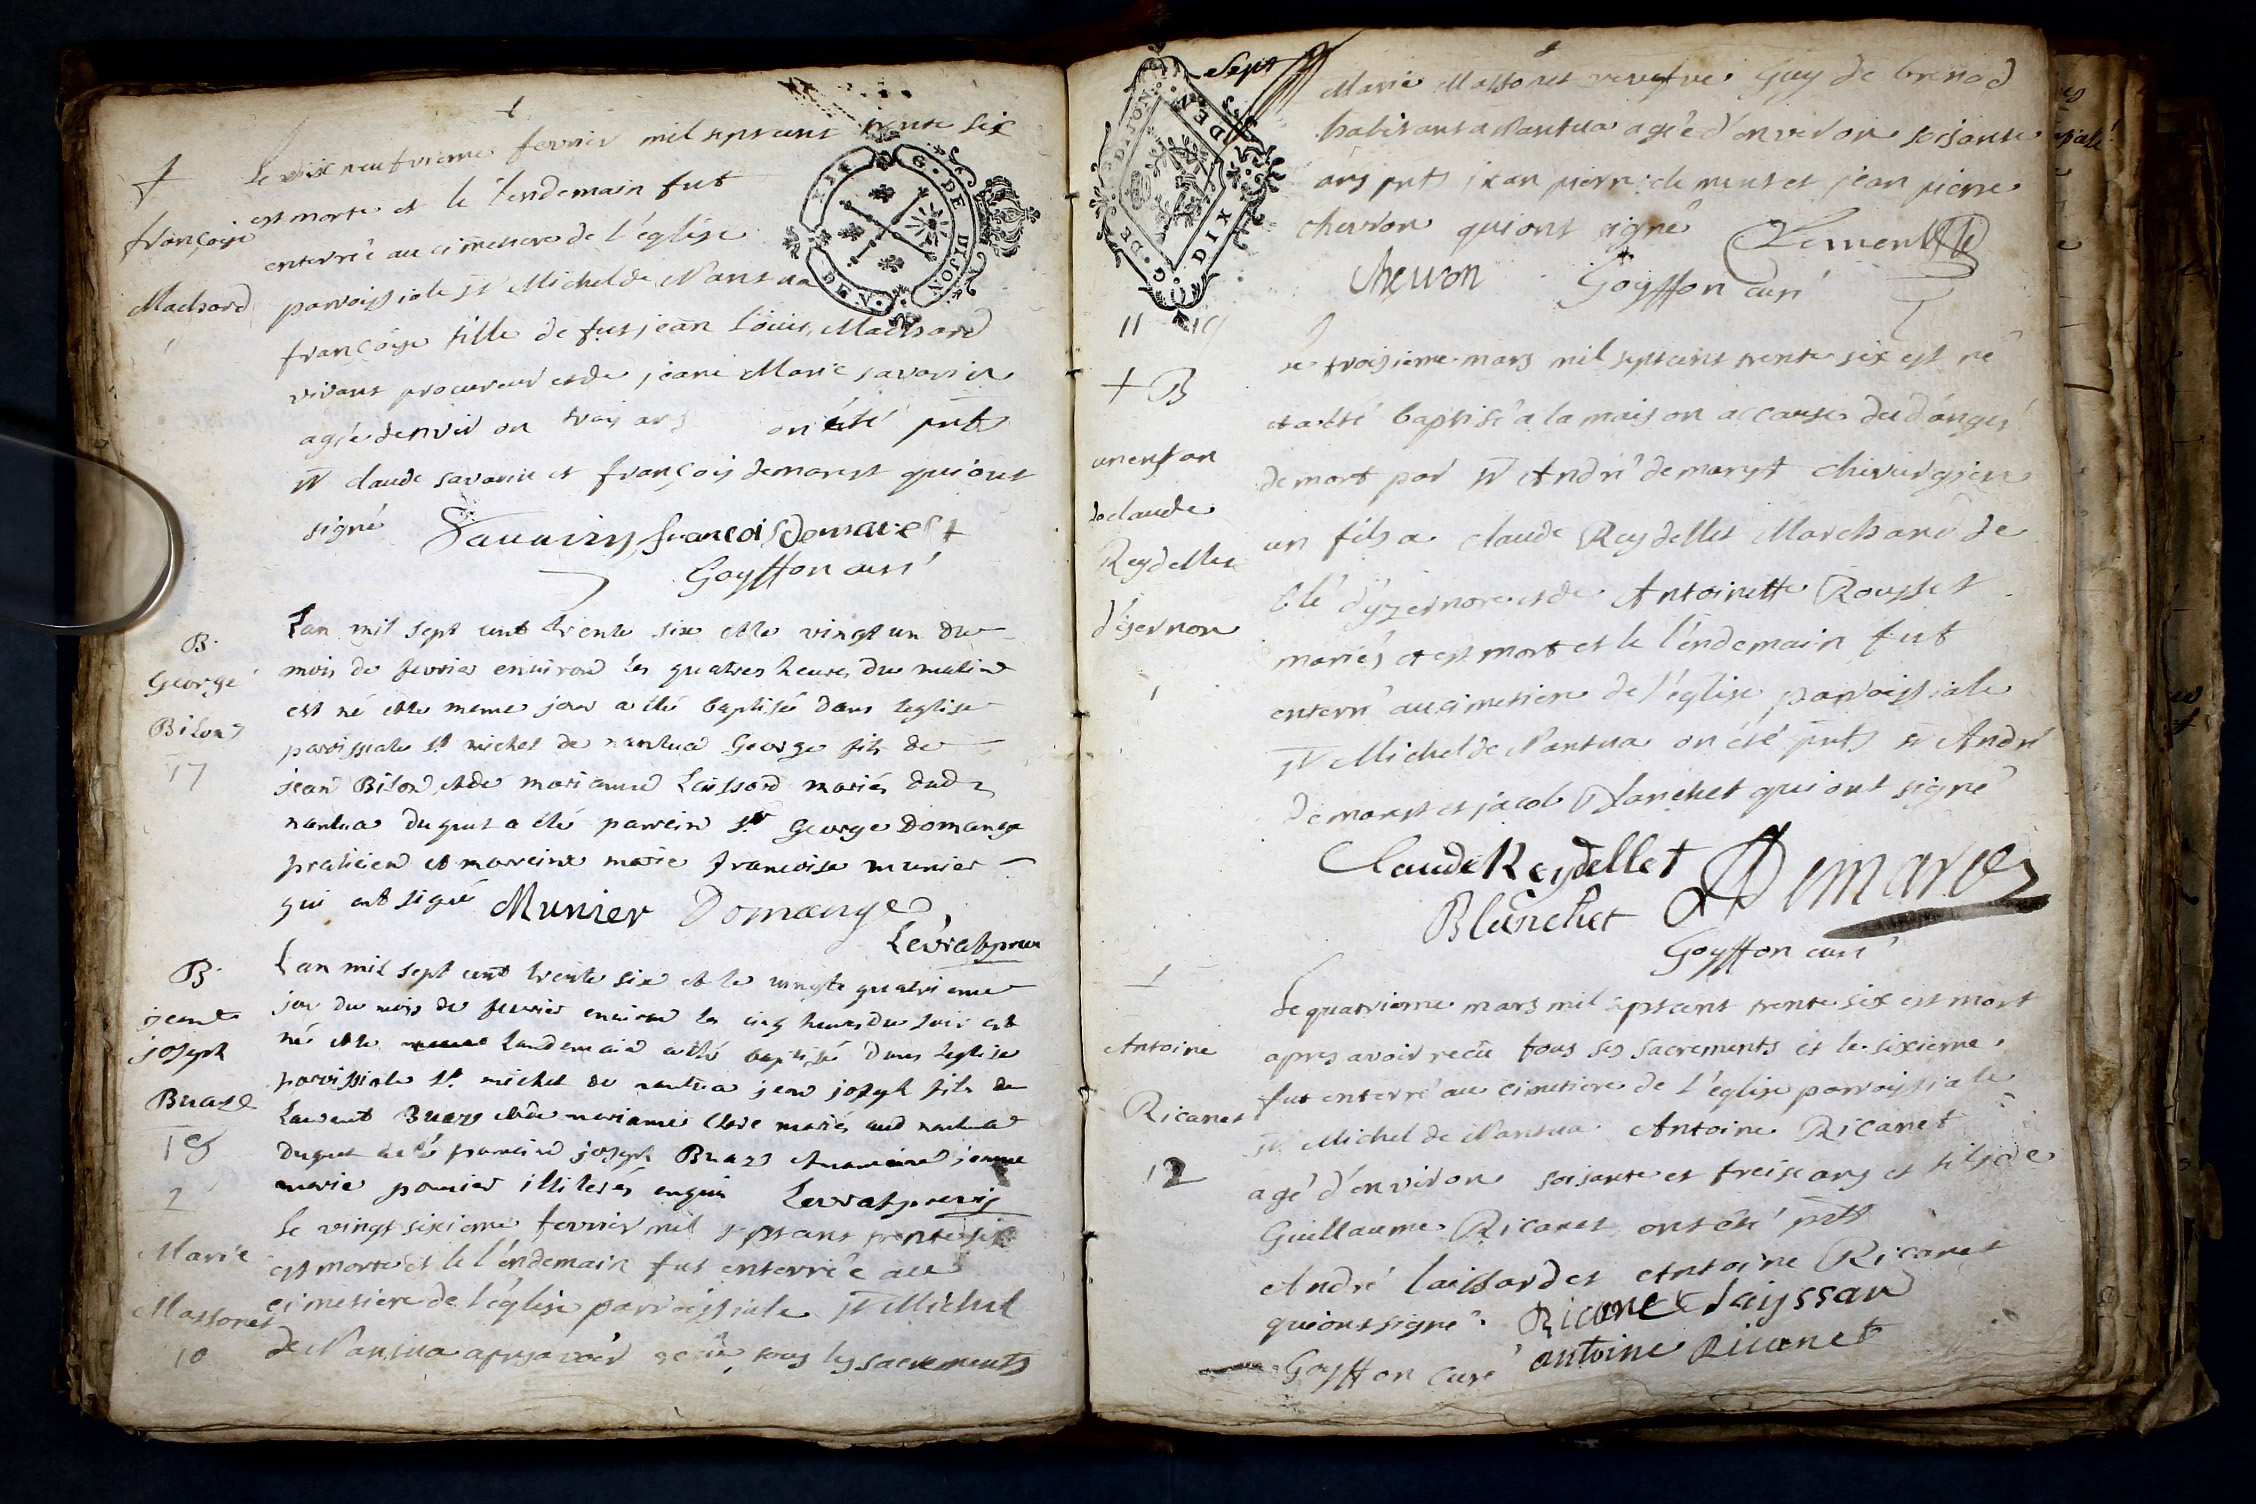 †
françoise
Machard
Le dix neufvieme fevrier mil sept cent trente six
est morte et le l'endemain fut
enterrée au cimetiere de l'église
parroissiale st Michel de Nantua
françoise fille de fut jean Louis Machard
vivant procureur et de jeane Marie savarin
agée d'environ trois ans on été pnts
sr claude savarin et françois demarest qui ont
signé Savarin françois Demarest
Goyffon curé
B.
George
Bilon
17
L'an mil sept cent trente six et le vingt un du
mois de fevrier environ les quatres heures du matin
est né et le meme jour a été baptisé dans l'eglise
parroissiale st michel de nantua George fils de
jean Bilon et de marianne Laissard mariés dud
nantua duquel a été parrein sr George Domange
praticien et marreine marie francoise munier
qui ont signé Munier Domange
Levrat
B.
jean
joseph
Buaz
18
L'an mil sept cent trente six et le vingt quatrieme
jour du mois de fevrier environ les cinq heures du soir est
né et le landemain a été baptisé dans l'eglise
parroissiale st michel de nantua jean joseph fils de
Laurent Buaz et de marianne mariés aud nantua
duquel a été parrein joseph Buaz et marreine jeanne
marie illiterés enquis Levrat
2
Marie
Massonet
10
Le vingt sixieme fevrier mil sept cent trente six
est morte et le l'endemain fut enterrée au
cimetiere de l'église parroissiale st Michel
de Nantua apres avoir reçu tous les sacrements
G. DE DIJON
Sept
G. DE DIJON
DIX
Marie Massonet veufve Guy de brenod
habitant a Nantua agée d'environ soisante
ans pnts jean pierre clement et jean pierre
chevron qui ont signé Clement
Chevron Goyffon curé
11
† B
un enfan
de claude
Reydellet
d'Isernon
Le troisieme mars mil sept cent trente six est né
et a été baptisé a la maison a cause du danger
de mort par sr André demarest chirurgien
un fils a claude Reydellet Marchand de
d'yzernore et de Antoinette Rousset
mariés et est mort et le l'endemain fut
enterré au cimetiere de l'église parroissiale
st Michel de Nantua on été pnts sr André
demarest et jacob Blanchet qui ont signé
Claude Reydellet Demarest
Blanchet
Goyffon curé
†
Antoine
Ricanet
12
Le quatrieme mars mil sept cent trente six est mort
apres avoir reçu tous ses sacrements et le sixieme
fut enterré au cimetiere de l'église parroissiale
st Michel de Nantua Antoine Ricanet
agé d'environ soisante et treise ans et fils de
Guillaume Ricanet ont été pnts
André laissard et Antoine Ricanet
qui ont signé Ricanet Layssar
Goyffon curé antoine Ricanet